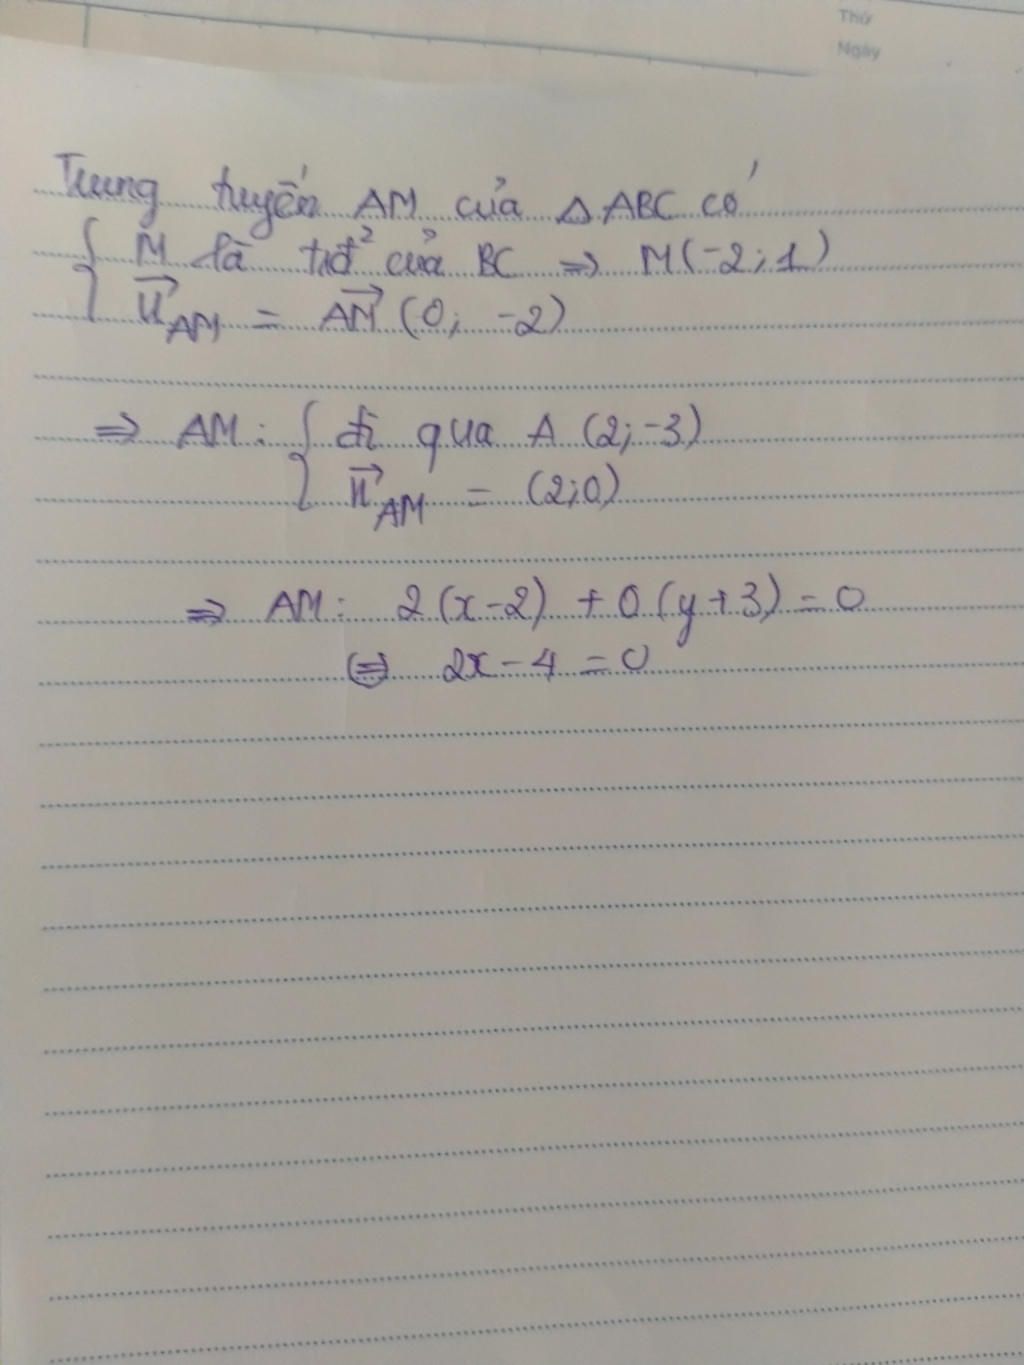 Thứ
Ngày
Trung tuyến AM của △ABC có
{ M là trđ² của BC ⇒ M(-2;1)
u⃗_AM = AM⃗ (0; -2)
⇒ AM: { đi qua A (2;-3)
n⃗_AM = (2;0)
⇒ AM: 2(x-2) + 0(y+3) = 0
⇔ 2x - 4 = 0